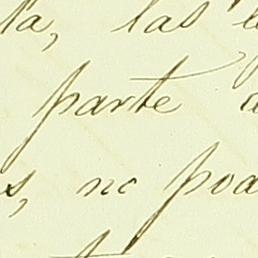 la, las
parte
s, no poa